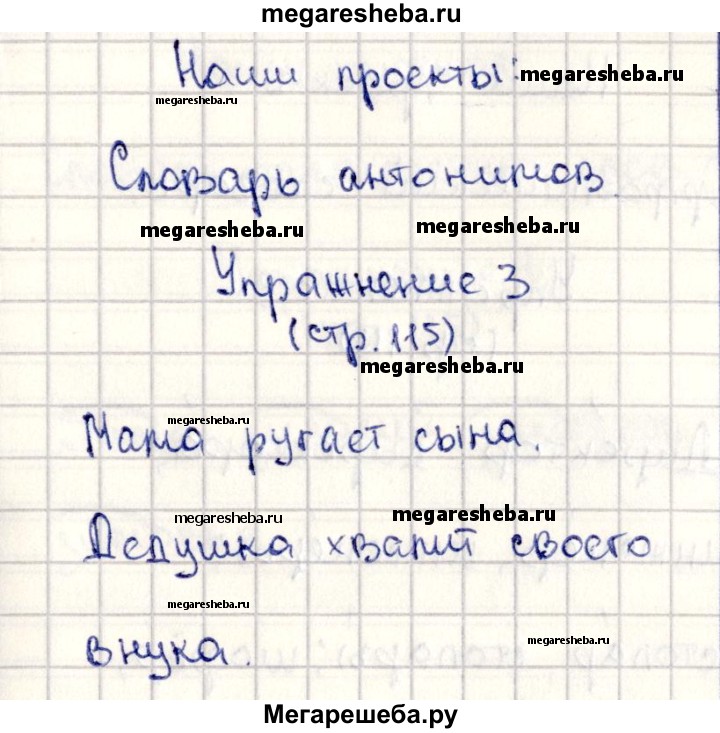 megaresheba.ru
Наши проекты:
megaresheba.ru
megaresheba.ru
Словарь антонимов
megaresheba.ru
megaresheba.ru
Упражнение 3
(стр. 115)
megaresheba.ru
megaresheba.ru
Мама ругает сына.
megaresheba.ru
megaresheba.ru
Дедушка хвалит своего
megaresheba.ru
megaresheba.ru
внука.
Мегарешеба.ру